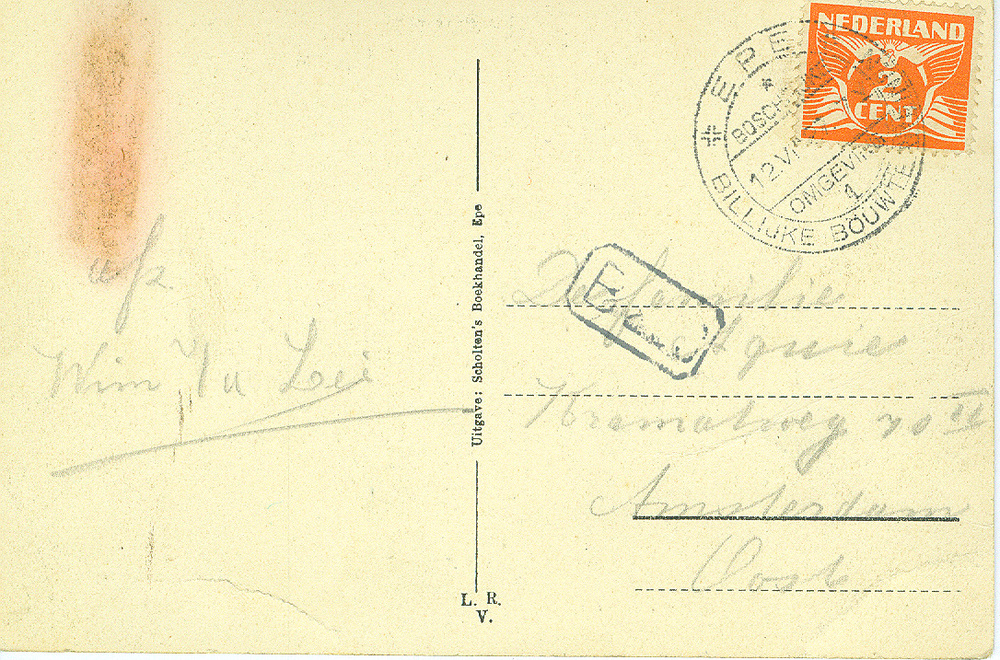 NEDERLAND
2
CENT
EPE
BOSCH
12.VI
OMGEVING
1
BILLIJKE BOUWTE
afz.
Wim v/d Lei
Uitgave: Scholten's Boekhandel, Epe
De familie
Kramatweg
Amsterdam
Oost
L. R.
V.